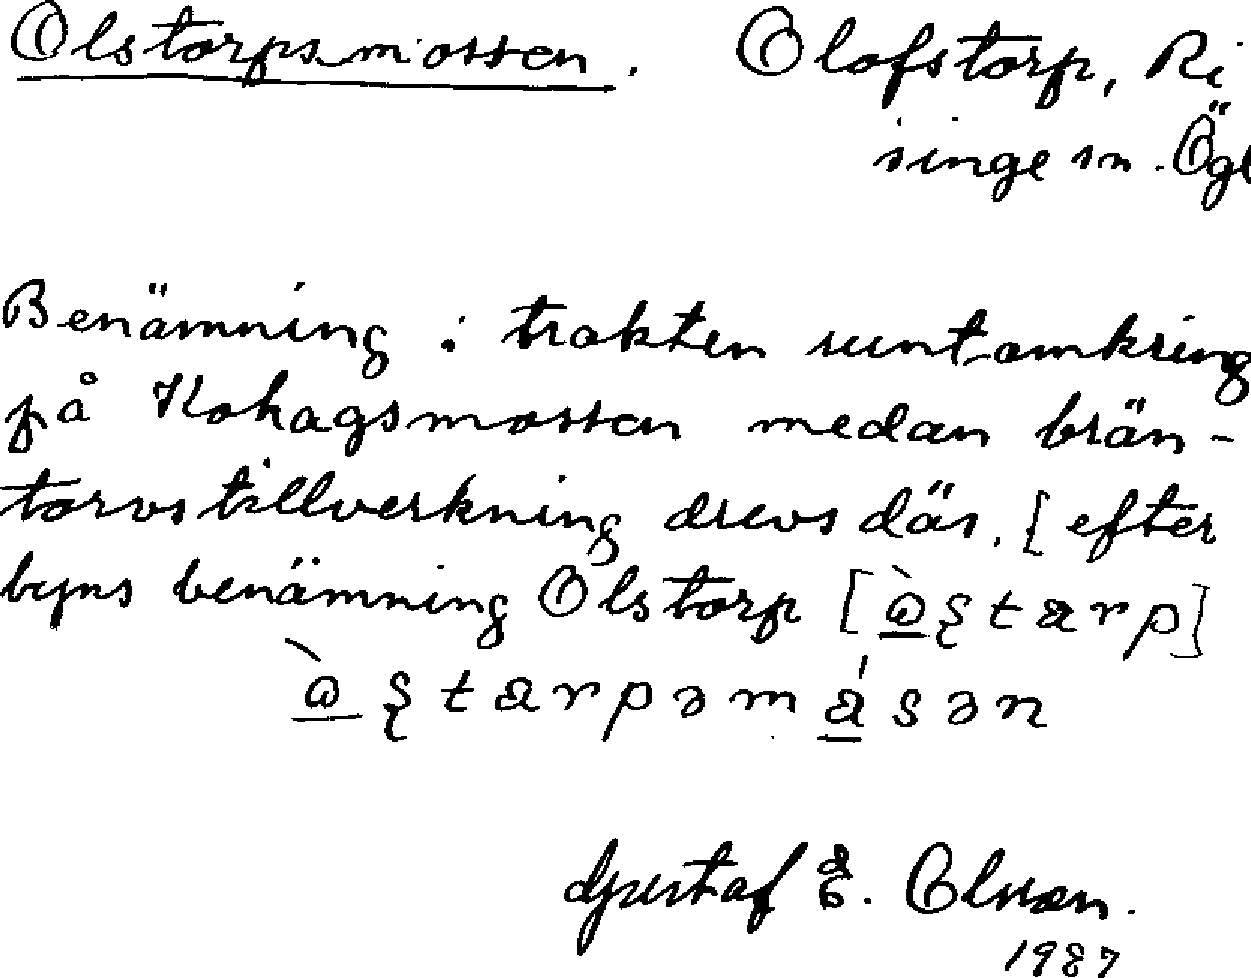 Olstorpsmossen. Olofstorp, Ri
singe sn. Ögl
Benämning i trakten runtomkring
på Kohagsmossen medan brän-
torvstillverkning drevs där. [efter
byns benämning Olstorp
Gustaf E. Olsson.
1987